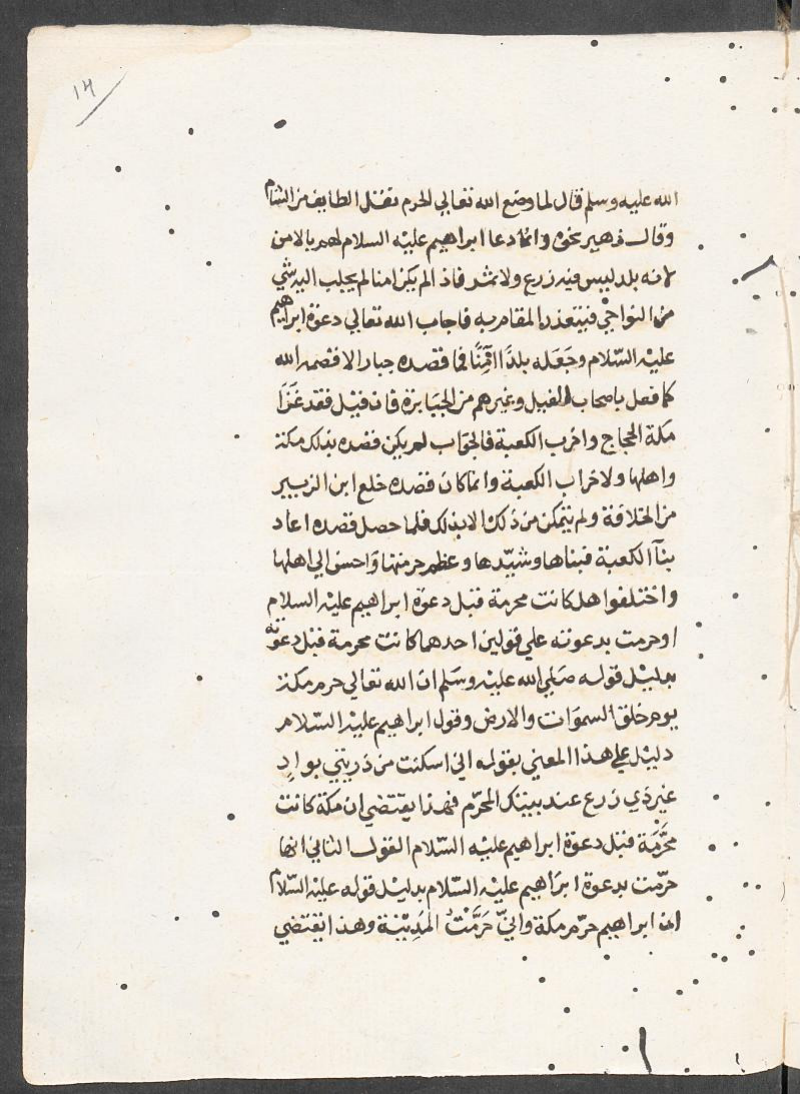 ١٣
الله عليه وسلم قال لما وضع الله تعالي الحرم نقل الطايف من الشام
وقال زهير نحوه وانما دعا ابراهيم عليه السلام لهم بالامن
لانه بلد ليس فيه زرع ولا ثمر فاذا لم يكن امنا لم يجلب اليه شي
من النواحي فيتعذر المقام به فاجاب الله تعالي دعوة ابراهيم
عليه السّلام وجَعَله بلدًا اٰمِنًا فما قصده جبار الا قصمه الله
كما فعل باصحاب الفيل وغيرهم من الجبَابرة فان قيل فقد غَزَا
مكة الحجاج واخرب الكعبة فالجوَاب لم يكن قصده بذلك مكة
واهلها ولا خراب الكعبة وانما كان قصده خلع ابن الزبير
من الخلافة ولم يتمكن من ذلك الا بذلك فلما حصل قصده اعاد
بنآ الكعبة فبناها وشيّدها وعظم حرمتها وَاحسن الي اهلها
واختلفوا هل كانت محرمة قبل دعوة ابراهيم عليه السلام
او حرمت بدعوته علي قولين احدهما كانت محرمة قبل دعوته
بدليل قوله صَلي الله عليه وسَلم ان الله تعالي حرم مكة
يوم خلق السموَات والارض وقول ابراهيم عليه السّلام
دليل علي هذا المعني بقوله اني اسكنت من ذريتي بوادٍ
غير ذي زرع عند بيتك المحرّم فهذا يقتضي ان مكة كانت
محرَّمَة قبل دعوة ابراهيم عليه السّلام القول الثاني انها
حرّمت بدعوة ابرَاهيم عليه السّلام بدليل قوله عليه السّلام
ان ابراهيم حرّم مكة وانيّ حَرَّمْتُ المَدِيْنَة وهذا يقتضي